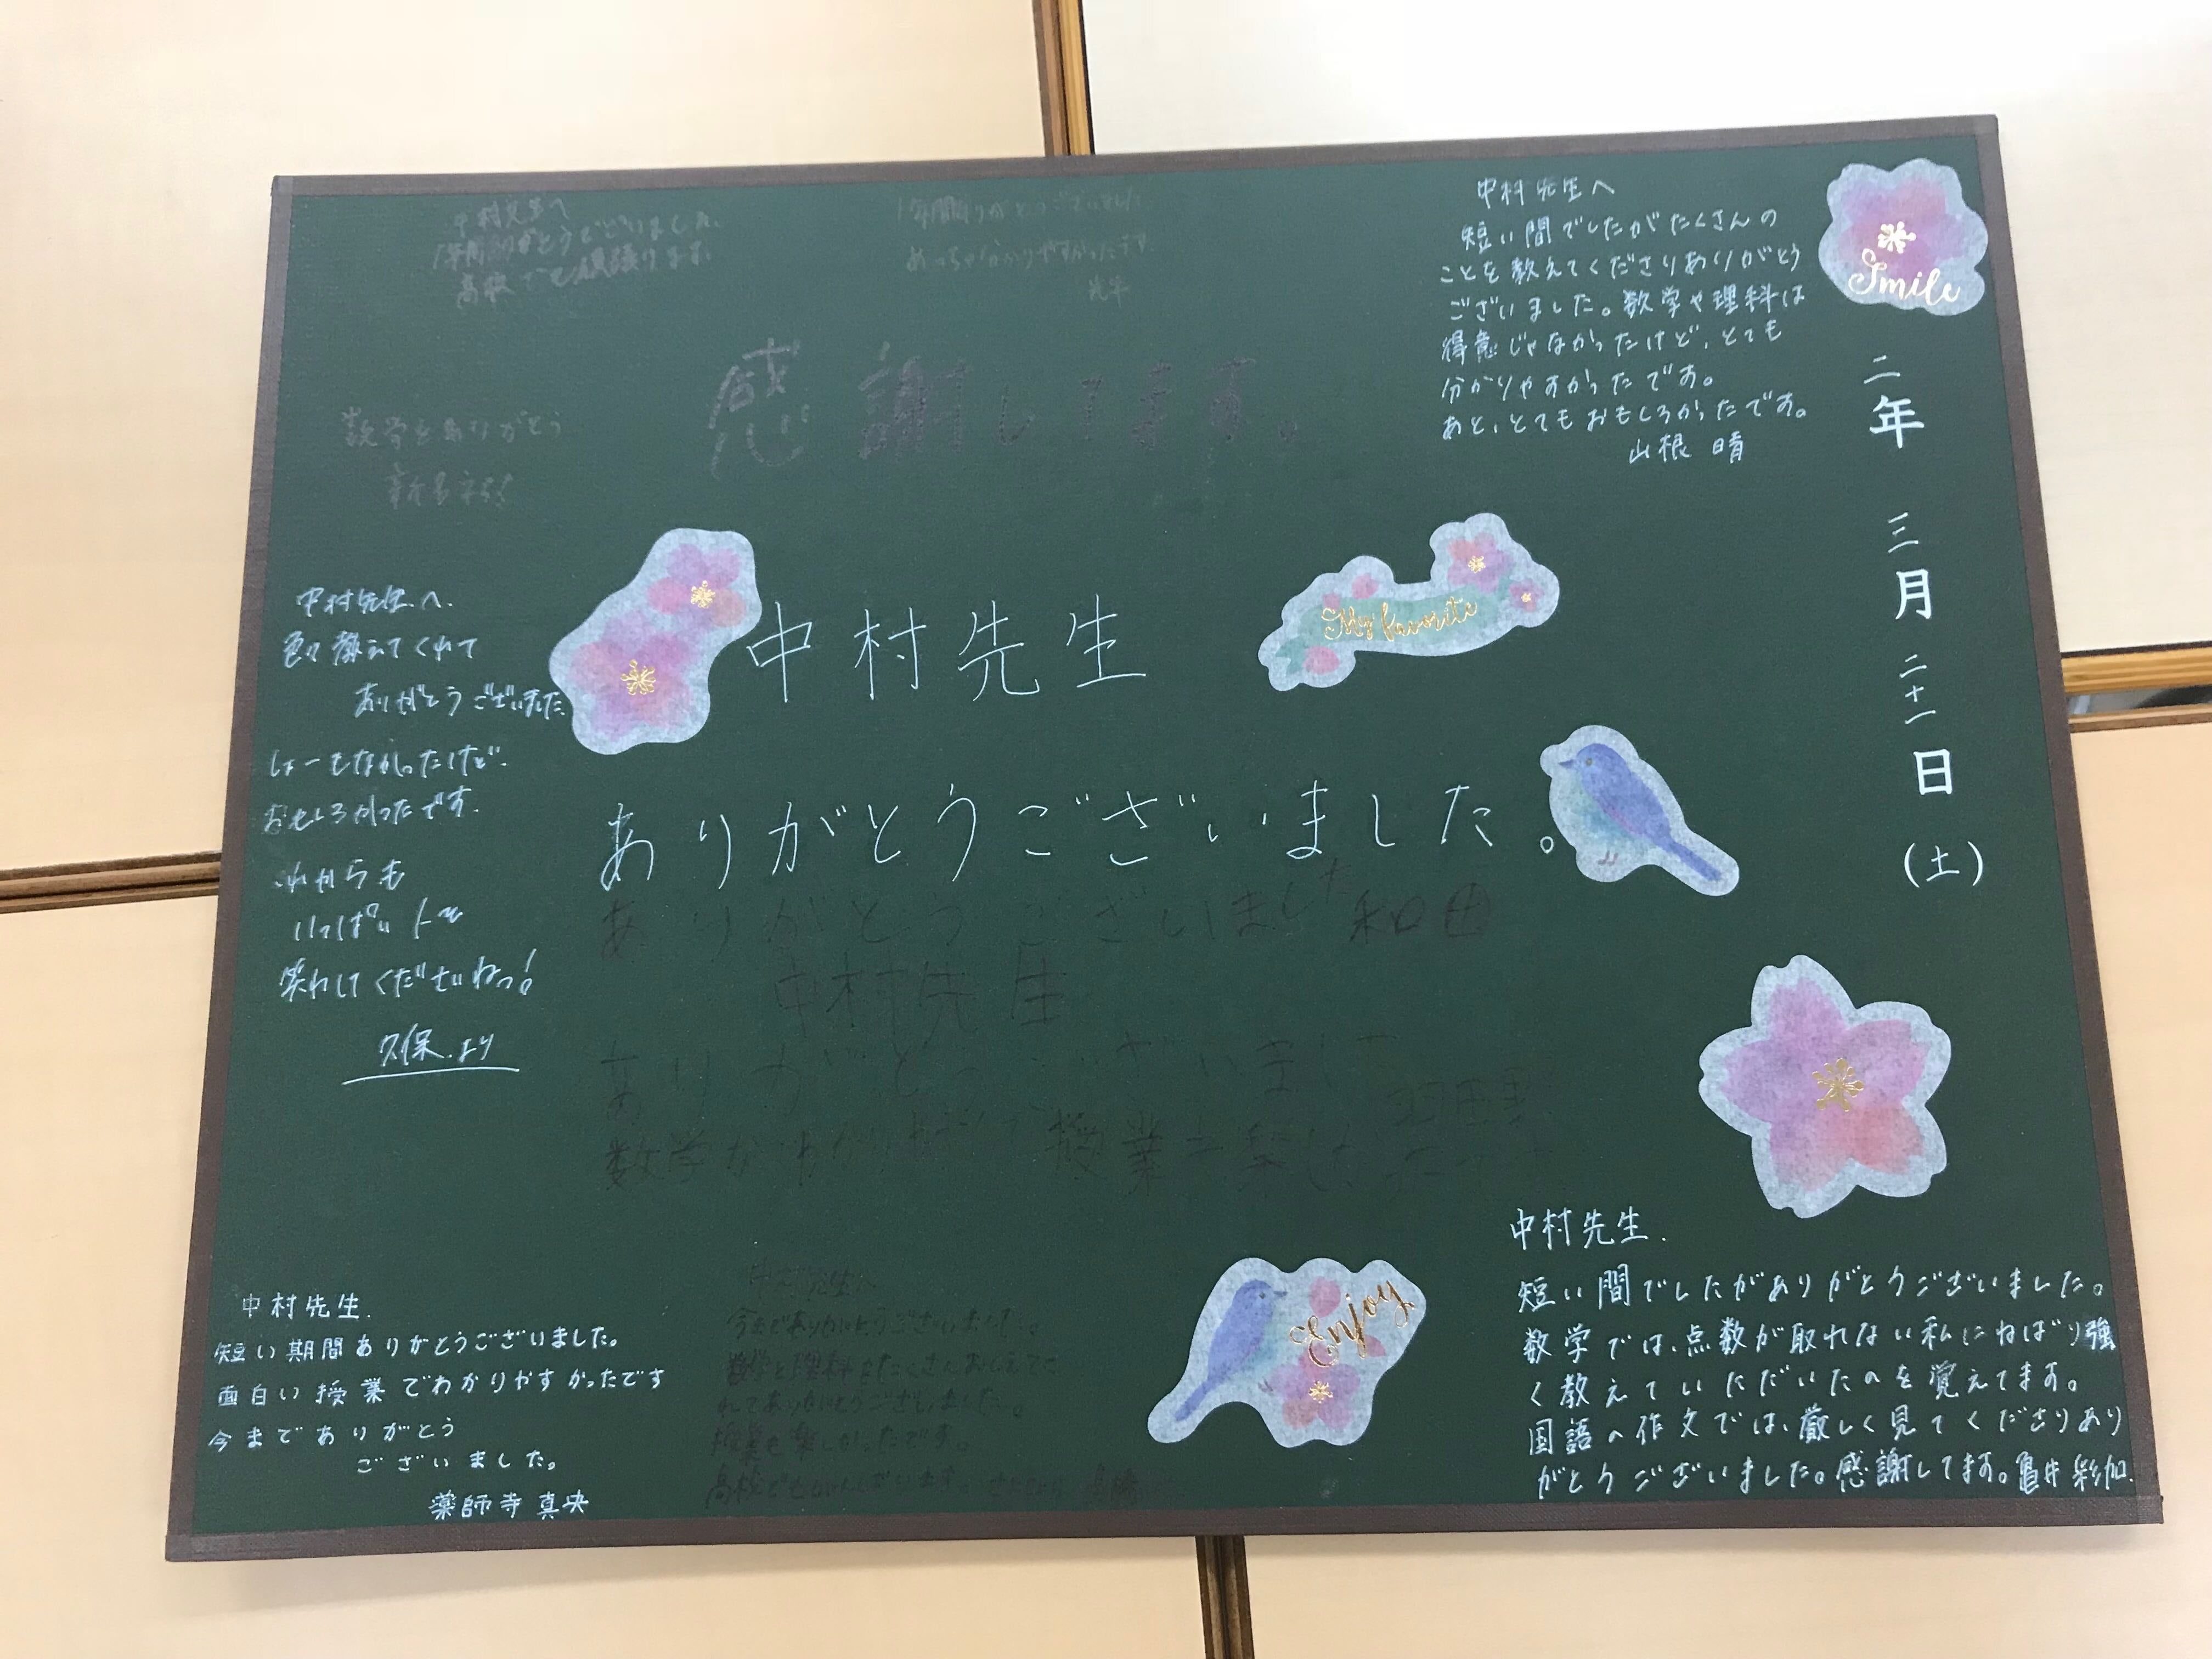 中村先生へ
1年間ありがとうございました。
高校でも頑張ります。
1年間ありがとうございました
めっちゃ分かりやすかったです
中村先生へ
短い間でしたがたくさんの
ことを教えてくださりありがとう
ございました。数学や理科は
得意じゃなかったけど、とても
分かりやすかったです。
あと、とてもおもしろかったです。
山根 晴
Smile
二年 三月 二十一日 (土)
感謝してます。
数学をありがとう
中村先生へ.
色々教えてくれて
ありがとうございました
しょーもなかったけど.
おもしろかったです.
これからも
いっぱい
笑わしてくださいねっ!
久保.より
中村先生
My favorite
ありがとうございました。
ありがとうございました 和田
中村先生
ありがとうございました
数学がわかりやすい 授業
中村先生.
短い期間ありがとうございました。
面白い授業でわかりやすかったです
今までありがとう
ございました。
薬師寺 真央
先生へ
今までありがとうございました。
数学と理科をたくさんおしえてく
れてありがとうございました。
授業も楽しかったです。
Enjoy
中村先生.
短い間でしたがありがとうございました。
数学では、点数が取れない私にねばり強
く教えていただいたのを覚えてます。
国語の作文では、厳しく見てくださりあり
がとうございました。感謝してます。亀井 彩加.